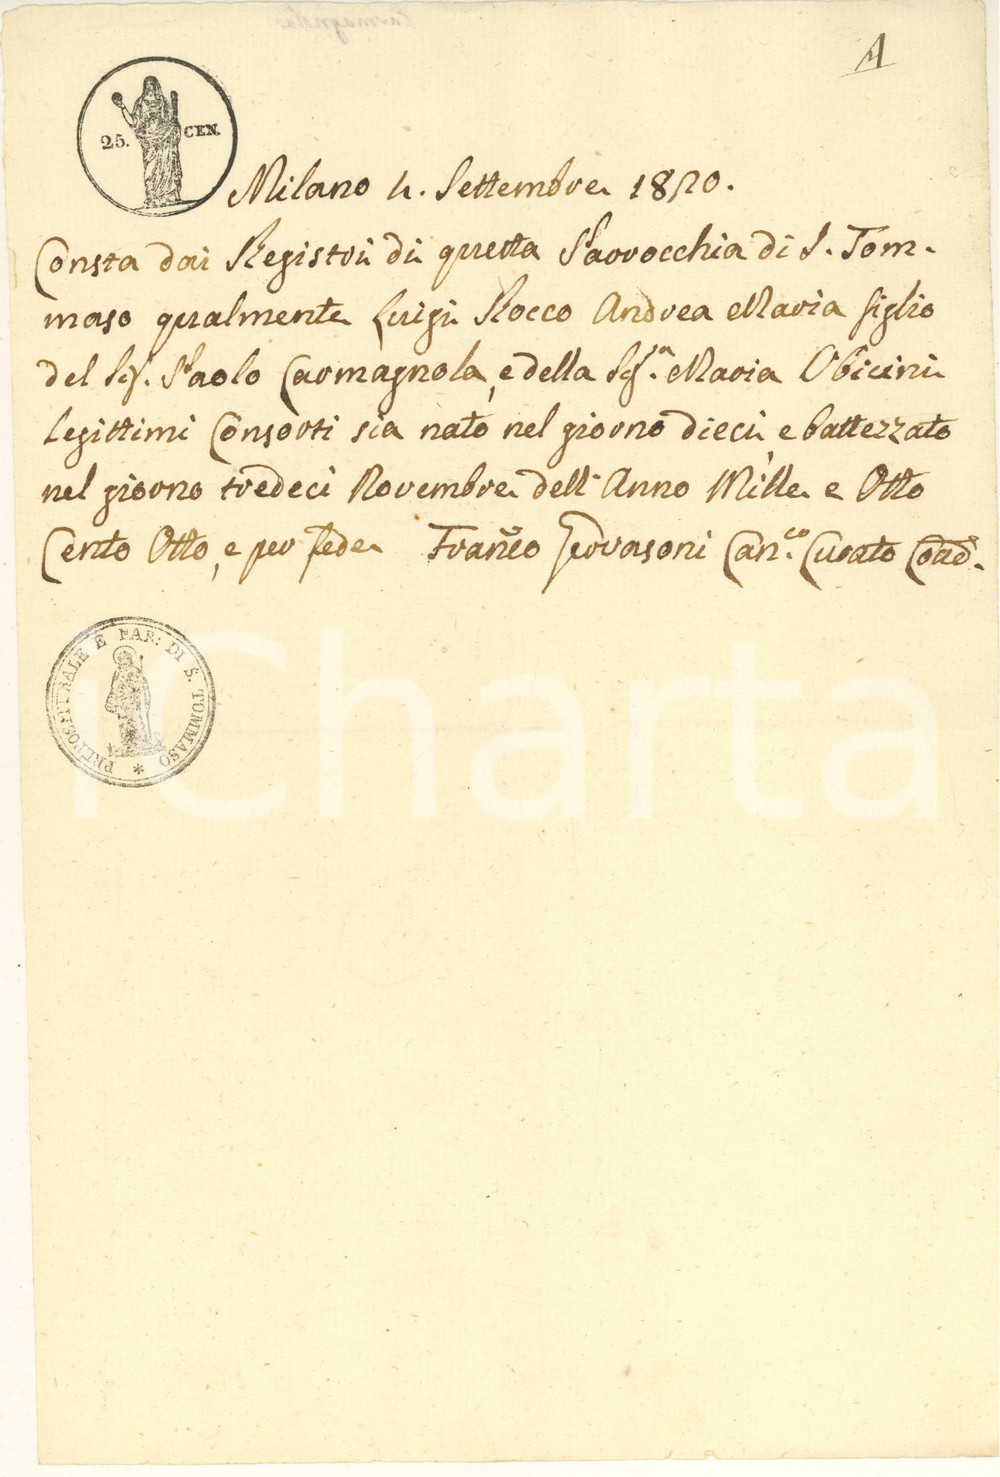 A
25. CEN.
Milano 4. Settembre 1820.
Consta dai Registri di questa Parrocchia di S. Tom-
maso qualmente Luigi Rocco Andrea Maria figlio
del Sig. Paolo Carmagnola, e della Sig.ra Maria Obicini
legittimi Consorti sia nato nel giorno dieci e battezzato
nel giorno tredeci Novembre dell'Anno Mille e Otto
Cento Otto, e per fede Franco Gervasoni Can.co Curato Coad.
PREPOSITURALE E PAR: DI S. TOMMASO *
iCharta